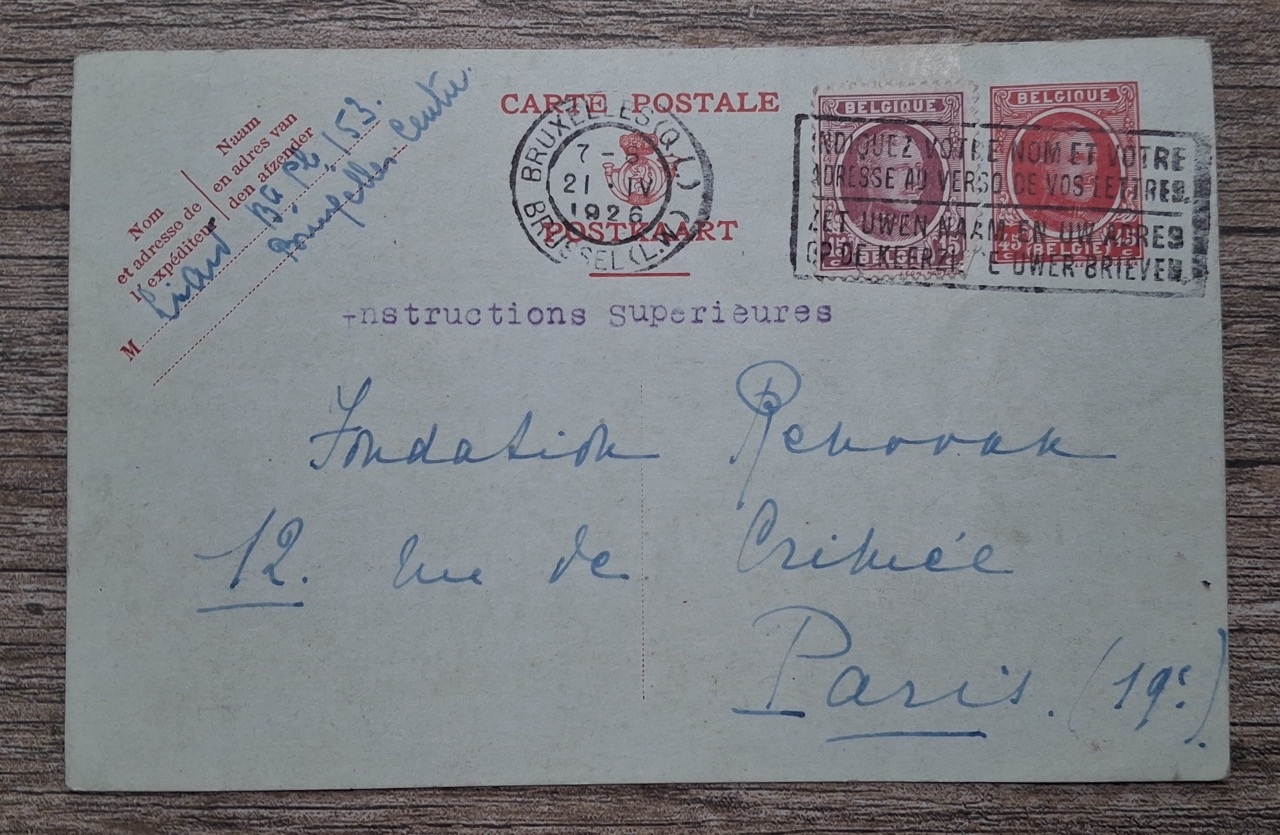 CARTE POSTALE
POSTKAART
Nom
et adresse de
l'expéditeur
Naam
en adres van
den afzender
M
Bte Ple 153.
Bruxelles-Centre.
BRUXELLES (Q.L.)
7 - 8
21 · IV
1926
BRUSSEL (L.W.)
BELGIQUE
15 15
BELGIQUE
45 45
c c
BELGIË
INDIQUEZ VOTRE NOM ET VOTRE
ADRESSE AU VERSO DE VOS LETTRES
ZET UWEN NAAM EN UW ADRES
OP DE KEERZIJDE UWER BRIEVEN
Instructions Superieures
Fondation
12. rue de Crimée
Paris. (19e.)